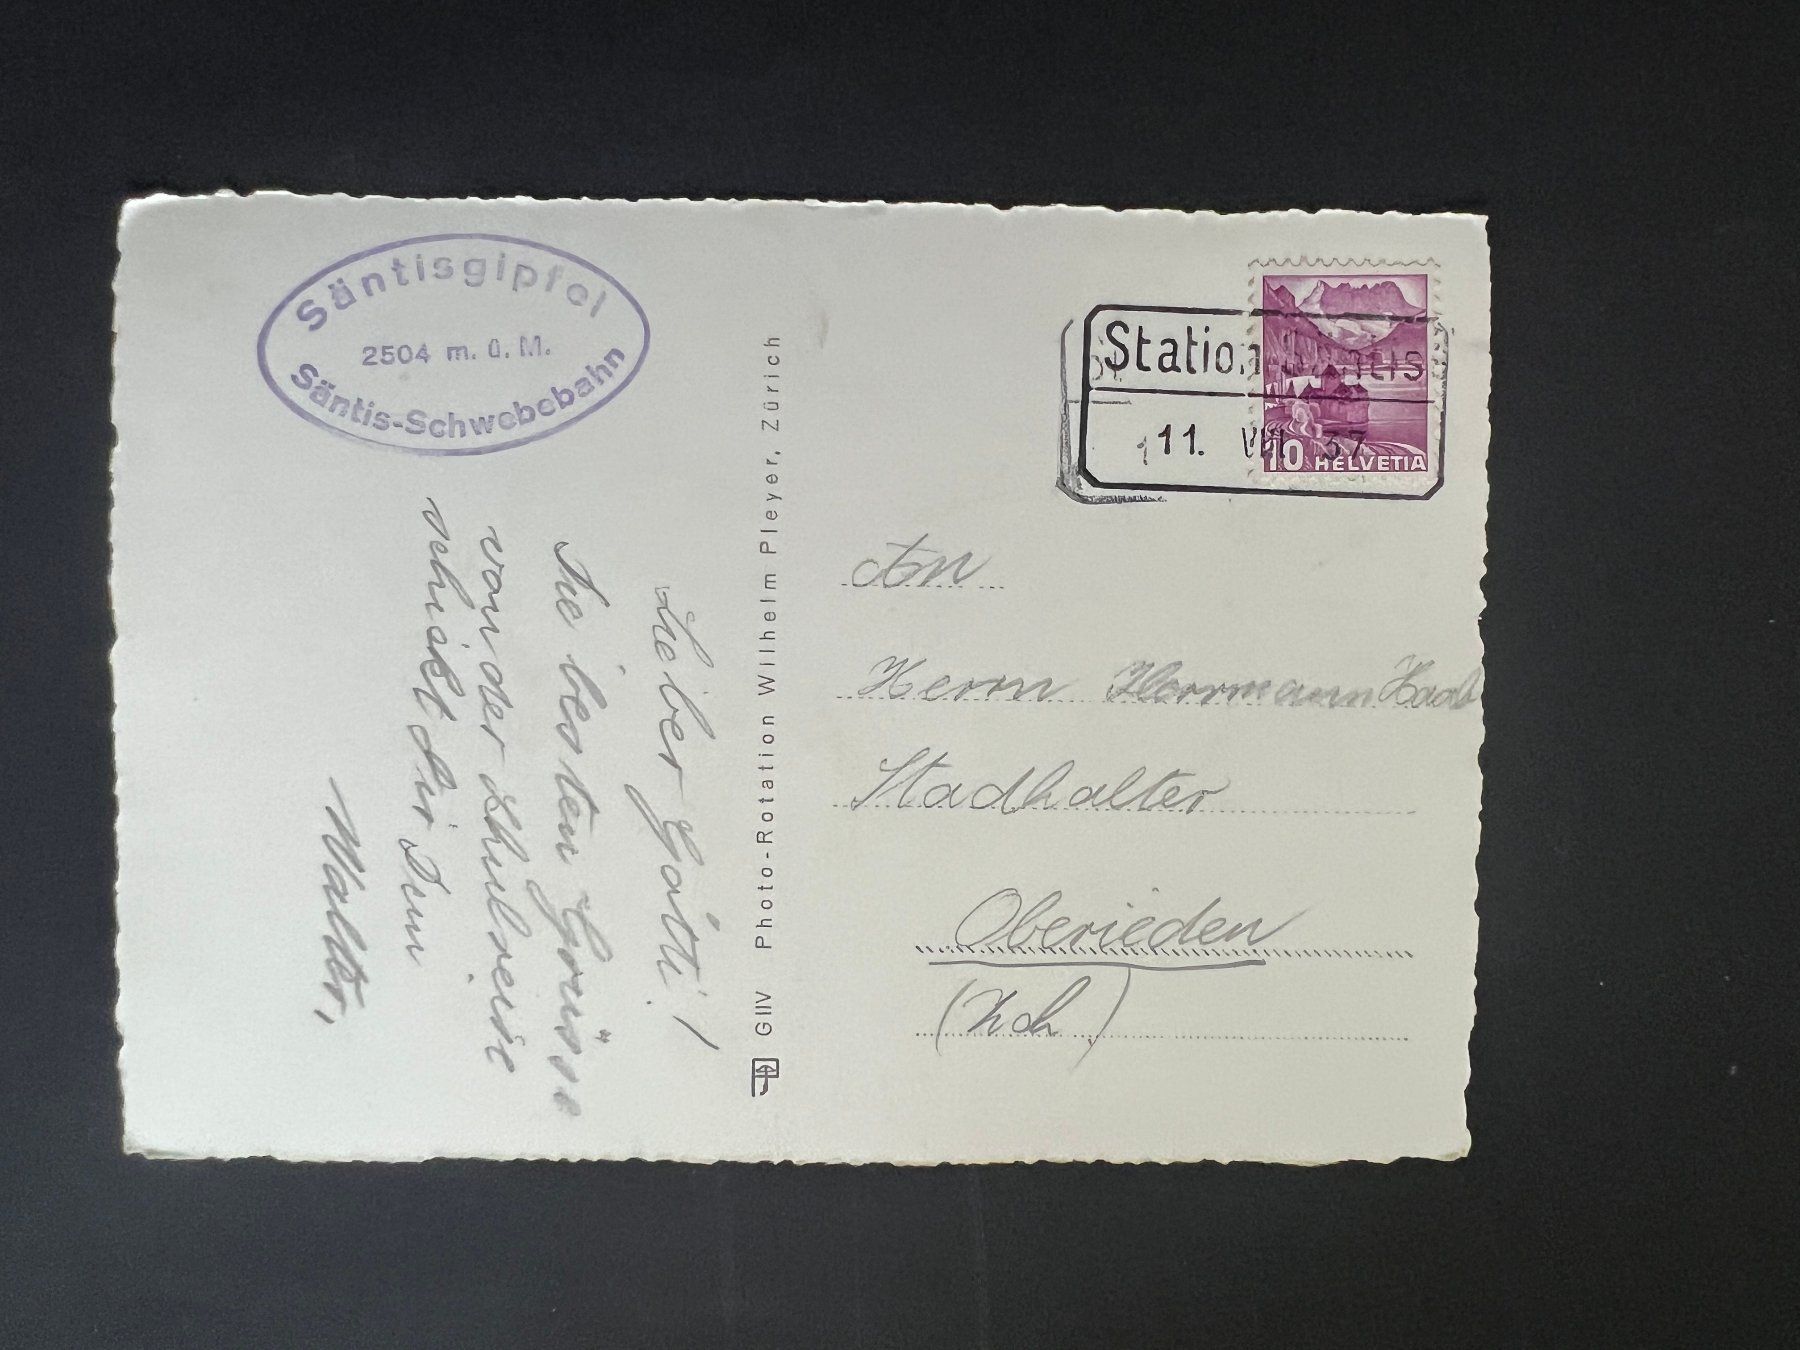 Säntisgipfel
2504 m. ü. M.
Säntis-Schwebebahn
Lieber Götti!
Die besten Grüsse
von der Schulreise
schickt dir Dein
Walter.
GIIV Photo-Rotation Wilhelm Pleyer, Zürich
Station Säntis
11. VIII. 37
10 HELVETIA
An
Herrn Herrmann Haab
Stadhalter
Oberieden
(Zch)